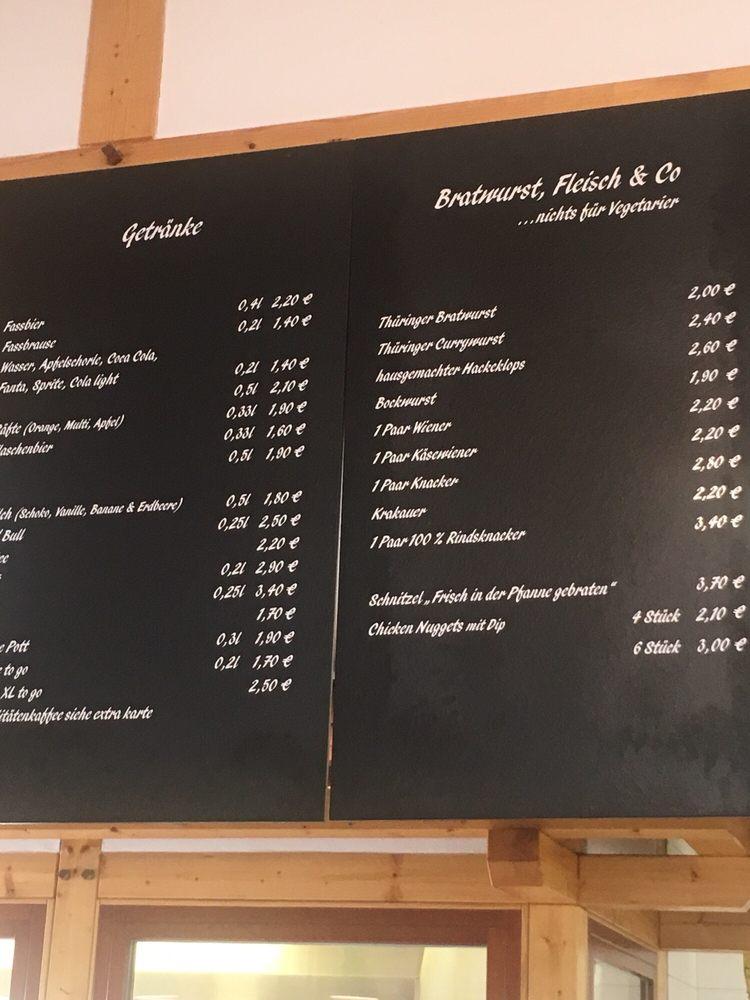 Getränke
Fassbier 0,4l 2,20 €
Fassbrause 0,2l 1,40 €
Wasser, Apfelschorle, Coca Cola,
Fanta, Sprite, Cola light 0,2l 1,40 €
0,5l 2,10 €
(Orange, Multi, Apfel) 0,33l 1,90 €
0,33l 1,60 €
0,5l 1,90 €
(Schoko, Vanille, Banane & Erdbeere) 0,5l 1,80 €
Bull 0,25l 2,50 €
2,20 €
0,2l 2,90 €
0,25l 3,40 €
1,70 €
Pott 0,3l 1,90 €
to go 0,2l 1,70 €
XL to go 2,50 €
siehe extra karte
Bratwurst, Fleisch & Co
...nichts für Vegetarier
Thüringer Bratwurst 2,00 €
Thüringer Currywurst 2,40 €
hausgemachter Hackeklops 2,60 €
Bockwurst 1,90 €
1 Paar Wiener 2,20 €
1 Paar Käsewiener 2,20 €
1 Paar Knacker 2,80 €
Krakauer 2,20 €
1 Paar 100 % Rindsknacker 3,40 €
Schnitzel „Frisch in der Pfanne gebraten“ 3,70 €
Chicken Nuggets mit Dip 4 Stück 2,10 €
6 Stück 3,00 €